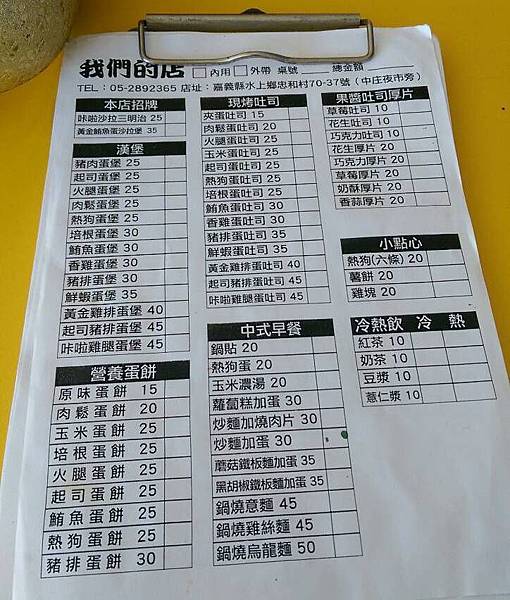 我們的店 內用 外帶 桌號 總金額
TEL：05-2892365 店址：嘉義縣水上鄉忠和村70-37號（中庄夜市旁）
本店招牌
咔啦沙拉三明治 25
黃金鮪魚蛋沙拉堡 35
漢堡
豬肉蛋堡 25
起司蛋堡 25
火腿蛋堡 25
肉鬆蛋堡 25
熱狗蛋堡 25
培根蛋堡 30
鮪魚蛋堡 30
香雞蛋堡 30
豬排蛋堡 30
鮮蝦蛋堡 35
黃金雞排蛋堡 40
起司豬排蛋堡 45
咔啦雞腿蛋堡 45
營養蛋餅
原味蛋餅 15
肉鬆蛋餅 20
玉米蛋餅 25
培根蛋餅 25
火腿蛋餅 25
起司蛋餅 25
鮪魚蛋餅 25
熱狗蛋餅 25
豬排蛋餅 30
現烤吐司
夾蛋吐司 15
肉鬆蛋吐司 20
火腿蛋吐司 25
玉米蛋吐司 25
起司蛋吐司 25
熱狗蛋吐司 25
培根蛋吐司 25
鮪魚蛋吐司 30
香雞蛋吐司 30
豬排蛋吐司 35
鮮蝦蛋吐司 35
黃金雞排蛋吐司 40
起司豬排蛋吐司 45
咔啦雞腿蛋吐司 45
中式早餐
鍋貼 20
熱狗蛋 20
玉米濃湯 20
蘿蔔糕加蛋 30
炒麵加燒肉片 30
炒麵加蛋 30
蘑菇鐵板麵加蛋 35
黑胡椒鐵板麵加蛋 35
鍋燒意麵 45
鍋燒雞絲麵 45
鍋燒烏龍麵 50
果醬吐司厚片
草莓吐司 10
花生吐司 10
巧克力吐司 10
花生厚片 20
巧克力厚片 20
草莓厚片 20
奶酥厚片 20
香蒜厚片 20
小點心
熱狗(六條) 20
薯餅 20
雞塊 20
冷熱飲 冷 熱
紅茶 10
奶茶 10
豆漿 10
薏仁漿 10